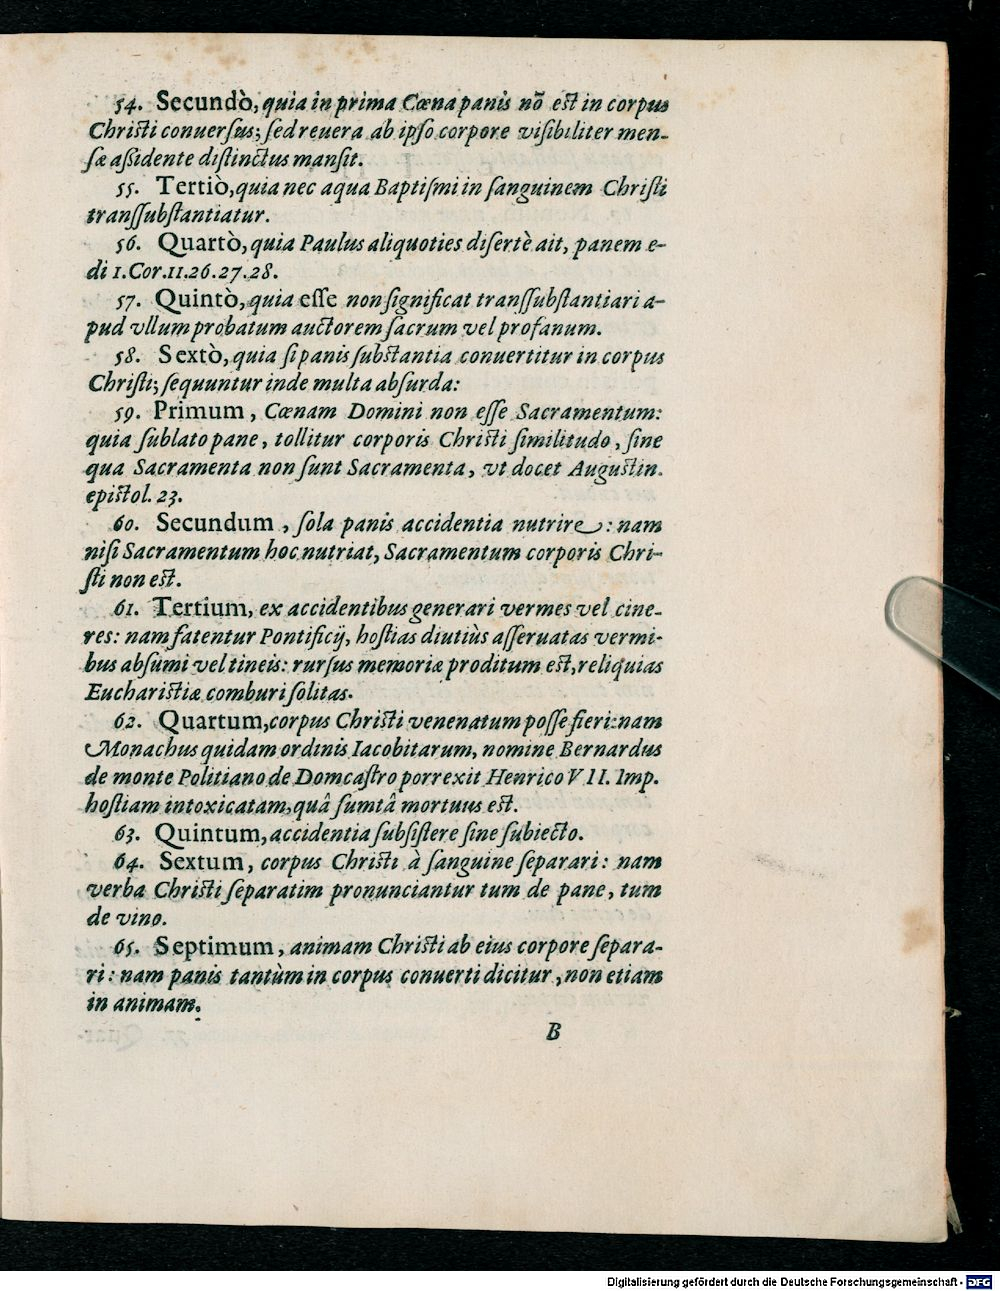 54. Secundò, quia in prima Cœna panis nō est in corpus
Christi conuersus; sed reuera ab ipso corpore visibiliter men-
sæ assidente distinctus mansit.
55. Tertiò, quia nec aqua Baptismi in sanguinem Christi
transsubstantiatur.
56. Quartò, quia Paulus aliquoties disertè ait, panem e-
di 1. Cor. 11. 26. 27. 28.
57. Quintò, quia esse non significat transsubstantiari a-
pud vllum probatum auctorem sacrum vel profanum.
58. Sextò, quia si panis substantia conuertitur in corpus
Christi; sequuntur inde multa absurda:
59. Primum, Cœnam Domini non esse Sacramentum:
quia sublato pane, tollitur corporis Christi similitudo, sine
qua Sacramenta non sunt Sacramenta, vt docet Augustin.
epistol. 23.
60. Secundum, sola panis accidentia nutrire: nam
nisi Sacramentum hoc nutriat, Sacramentum corporis Chri-
sti non est.
61. Tertium, ex accidentibus generari vermes vel cine-
res: nam fatentur Pontificij, hostias diutiùs asseruatas vermi-
bus absumi vel tineis: rursus memoriæ proditum est, reliquias
Eucharistiæ comburi solitas.
62. Quartum, corpus Christi venenatum posse fieri: nam
Monachus quidam ordinis Iacobitarum, nomine Bernardus
de monte Politiano de Domcastro porrexit Henrico VII. Imp.
hostiam intoxicatam, quâ sumtâ mortuus est.
63. Quintum, accidentia subsistere sine subiecto.
64. Sextum, corpus Christi à sanguine separari: nam
verba Christi separatim pronunciantur tum de pane, tum
de vino.
65. Septimum, animam Christi ab eius corpore separa-
ri: nam panis tantùm in corpus conuerti dicitur, non etiam
in animam.
B
Digitalisierung gefördert durch die Deutsche Forschungsgemeinschaft - DFG